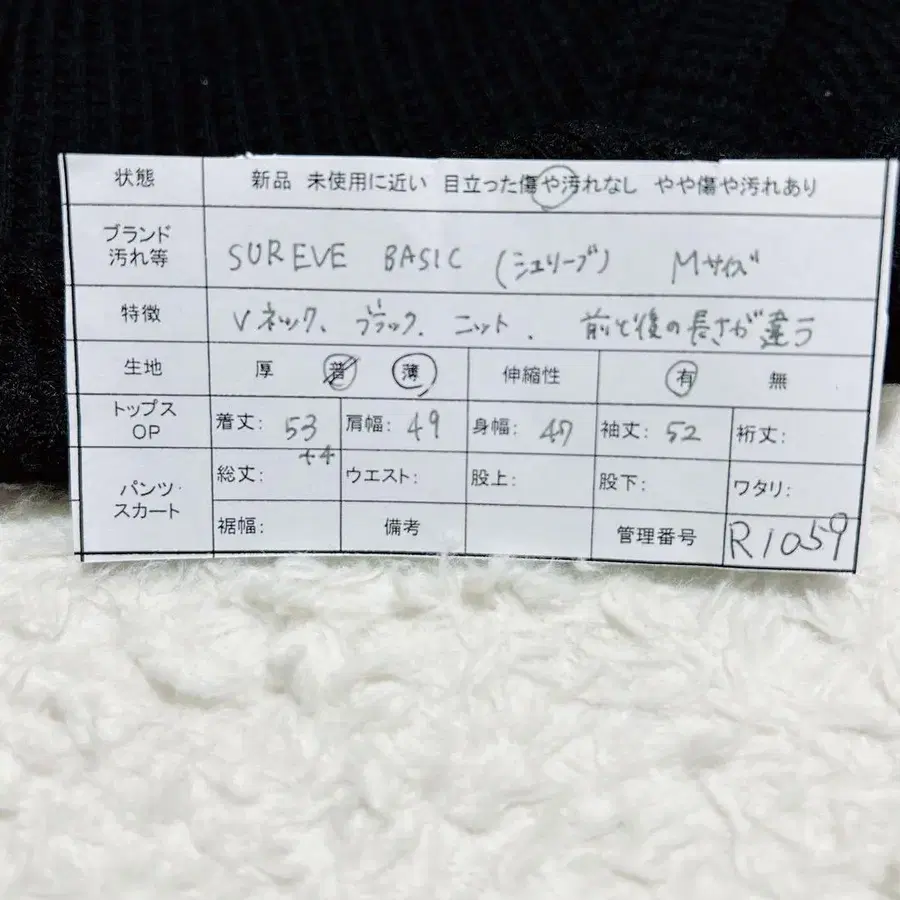 状態 新品 未使用に近い 目立った傷や汚れなし やや傷や汚れあり
ブランド
汚れ等
SUREVE BASIC (シュリーブ) Mサイズ
特徴 Vネック、ブラック、ニット、前と後の長さが違う
生地 厚 普 薄 伸縮性 有 無
トップス
OP
着丈: 53 肩幅: 49 身幅: 47 袖丈: 52 裄丈:
++
パンツ・
スカート
総丈: ウエスト: 股上: 股下: ワタリ:
裾幅: 備考 管理番号 R1059